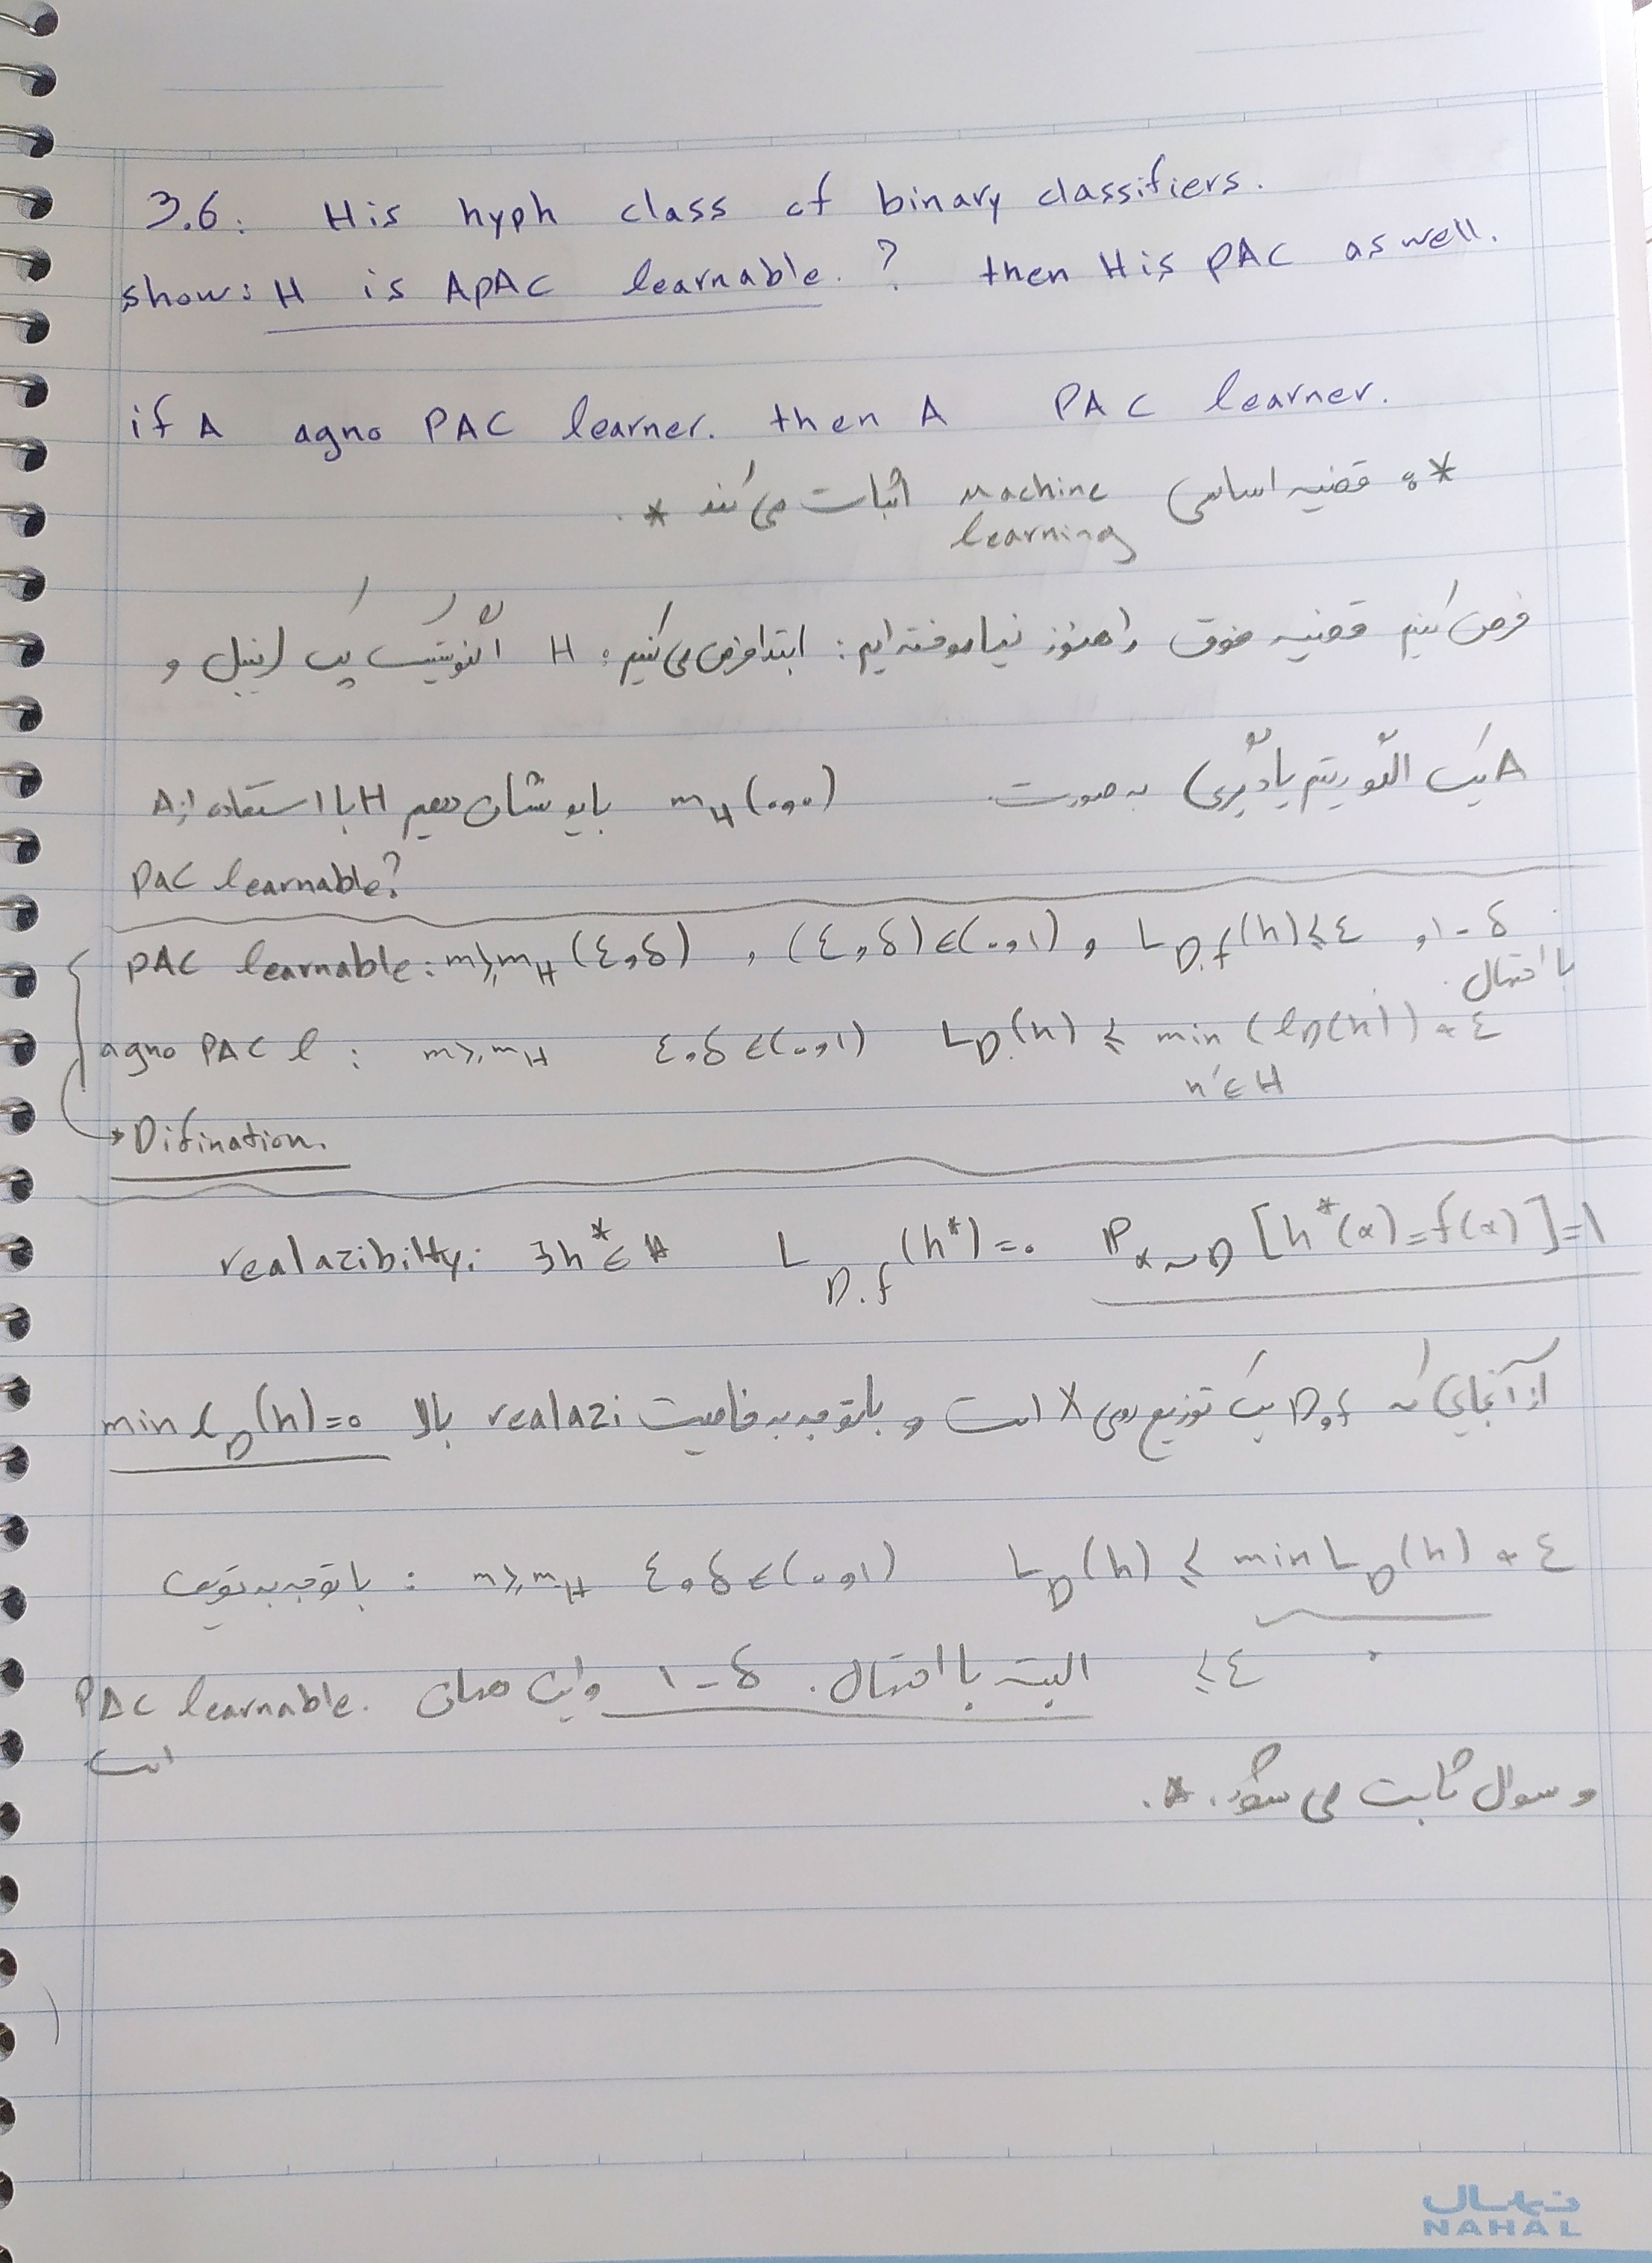 3.6: H is hyph class of binary classifiers.
show: H is APAC learnable. ? then H is PAC as well.
if A agno PAC learner. then A PAC learner.
* : قضیه اساسی machine learning اثبات می کند *.
فرض کنیم قضیه فوق را هنوز نیاموخته ایم: ابتدا فرض می کنیم: H اگنوستیک پک لرنبل و
A یک الگوریتم یادگیری به صورت m_H(.,.) باید نشان دهیم H با استفاده از A
PAC learnable?
PAC learnable: m≥m_H(ε,δ) , (ε,δ)∈(0,1) , L_D,f(h)≤ε , 1-δ با احتمال.
agno PAC l : m≥m_H ε,δ∈(0,1) L_D(h) ≤ min (L_D(h')) + ε
h'∈H
→ Difination.
realazibility: ∃h*∈H L_D,f(h*)=0 P_x~D [h*(x)=f(x)]=1
از آنجایی که D,f یک توزیع روی X است و باتوجه به خاصیت realazi بالا min L_D(h)=0
با توجه به تعریف : m≥m_H ε,δ∈(0,1) L_D(h) ≤ min L_D(h) + ε
0
≤ε البته با احتمال. 1-δ و این همان PAC learnable.
است
و سوال ثابت می شود. *.
نهال
NAHAL